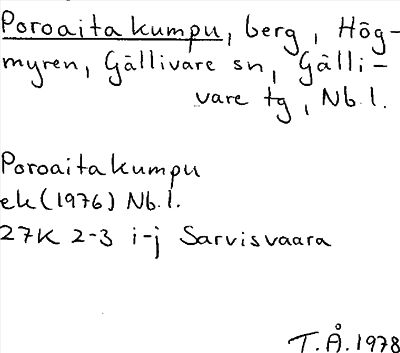 Poroaitakumpu, berg, Hög-
myren, Gällivare sn, Gälli-
vare tg, Nb.l.
Poroaitakumpu
ek (1976) Nb.l.
27K 2-3 i-j Sarvisvaara
T.Å. 1978